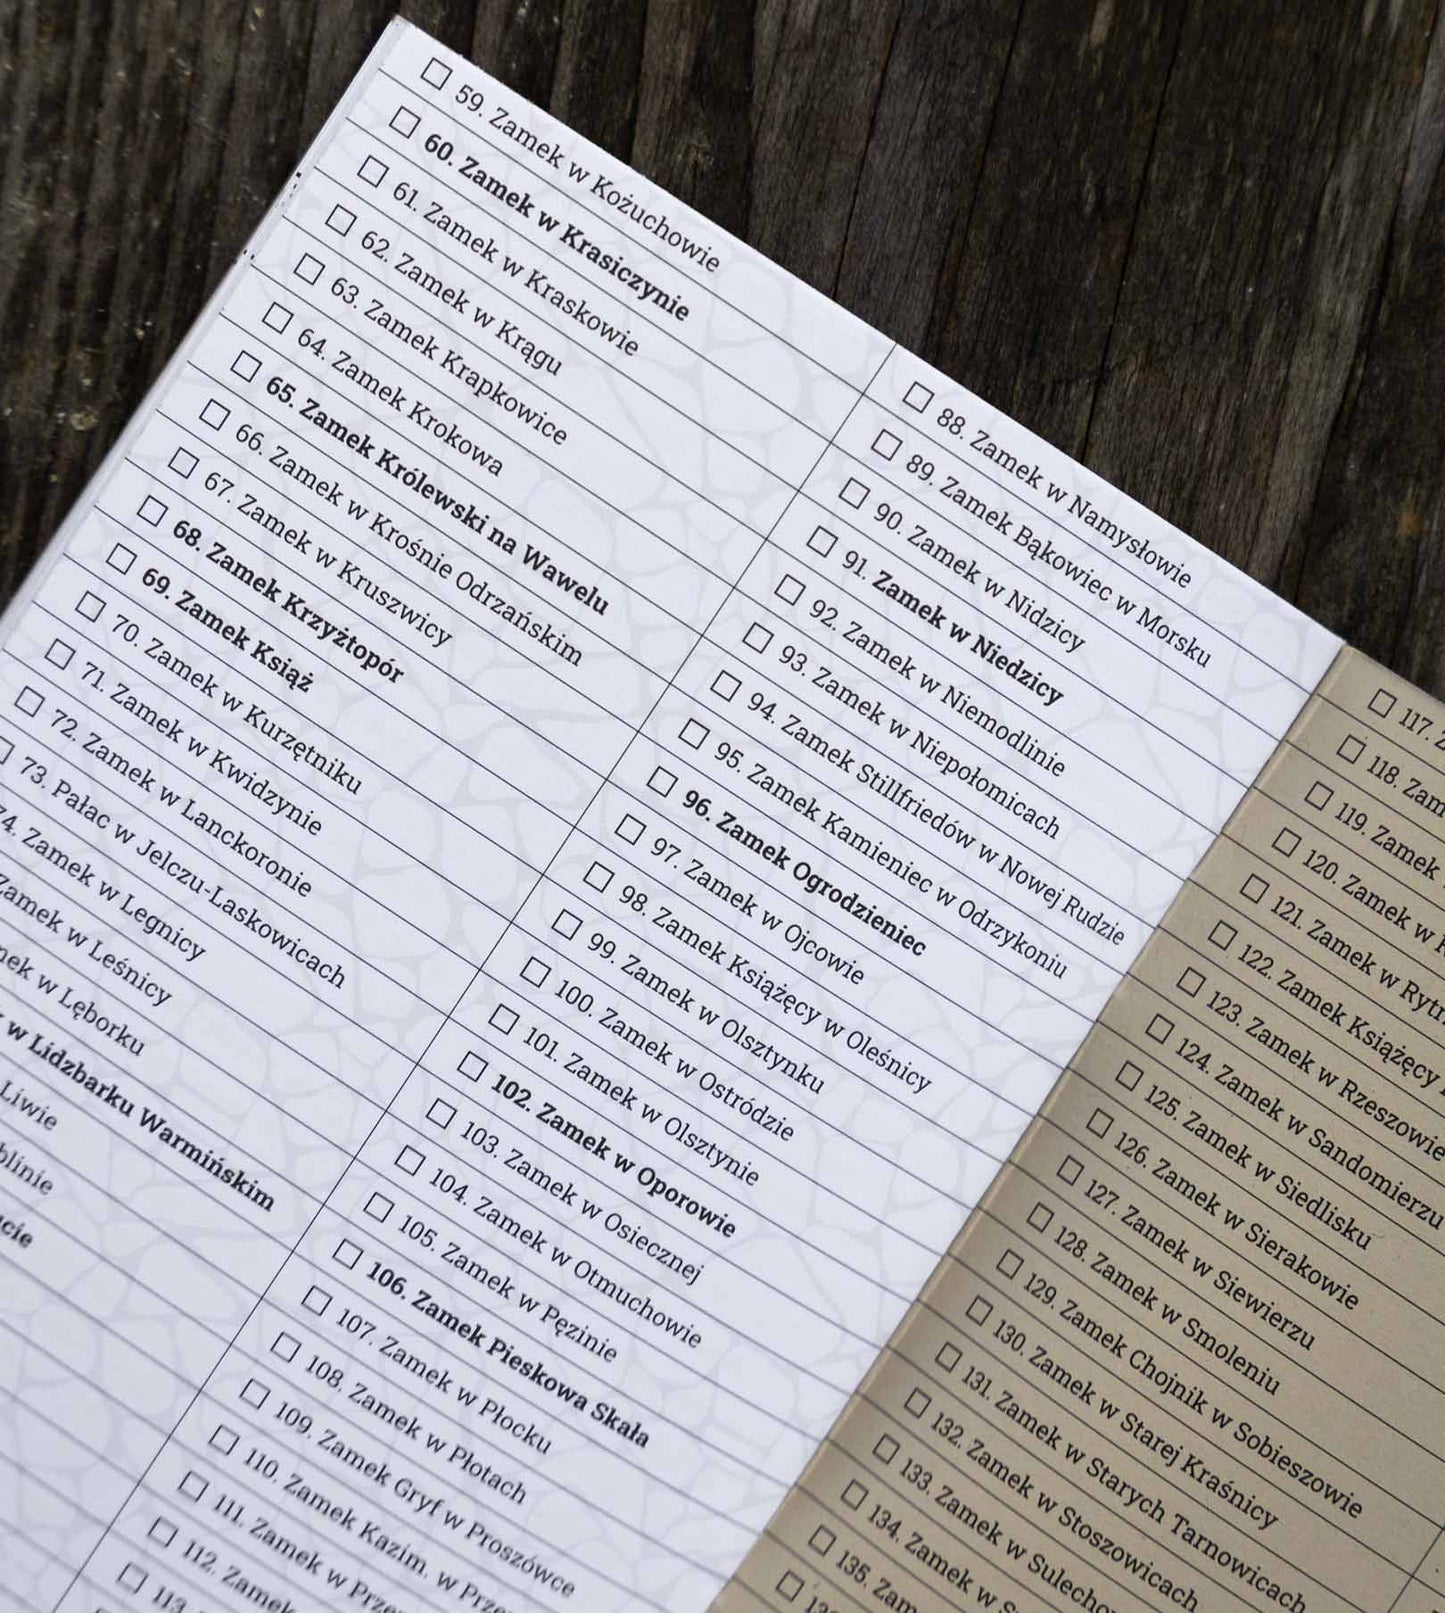 59. Zamek w Kożuchowie
60. Zamek w Krasiczynie
61. Zamek w Kraskowie
62. Zamek w Krągu
63. Zamek Krapkowice
64. Zamek Krokowa
65. Zamek Królewski na Wawelu
66. Zamek w Krośnie Odrzańskim
67. Zamek w Kruszwicy
68. Zamek Krzyżtopór
69. Zamek Książ
70. Zamek w Kurzętniku
71. Zamek w Kwidzynie
72. Zamek w Lanckoronie
73. Pałac w Jelczu-Laskowicach
4. Zamek w Legnicy
Zamek w Leśnicy
mek w Lęborku
w Lidzbarku Warmińskim
Liwie
blinie
ucie
88. Zamek w Namysłowie
89. Zamek Bąkowiec w Morsku
90. Zamek w Nidzicy
91. Zamek w Niedzicy
92. Zamek w Niemodlinie
93. Zamek w Niepołomicach
94. Zamek Stillfriedów w Nowej Rudzie
95. Zamek Kamieniec w Odrzykoniu
96. Zamek Ogrodzieniec
97. Zamek w Ojcowie
98. Zamek Książęcy w Oleśnicy
99. Zamek w Olsztynku
100. Zamek w Ostródzie
101. Zamek w Olsztynie
102. Zamek w Oporowie
103. Zamek w Osiecznej
104. Zamek w Otmuchowie
105. Zamek w Pęzinie
106. Zamek Pieskowa Skała
107. Zamek w Płocku
108. Zamek w Płotach
109. Zamek Gryf w Proszówce
110. Zamek Kazim. w Prze
111. Zamek w Prze
112. Zamek
113.
117. Z
118. Zam
119. Zamek
120. Zamek w
121. Zamek w Rytr
122. Zamek Książęcy
123. Zamek w Rzeszowie
124. Zamek w Sandomierzu
125. Zamek w Siedlisku
126. Zamek w Sierakowie
127. Zamek w Siewierzu
128. Zamek w Smoleniu
129. Zamek Chojnik w Sobieszowie
130. Zamek w Starej Kraśnicy
131. Zamek w Starych Tarnowicach
132. Zamek w Stoszowicach
133. Zamek w Sulecho
134. Zamek w S
135. Zam